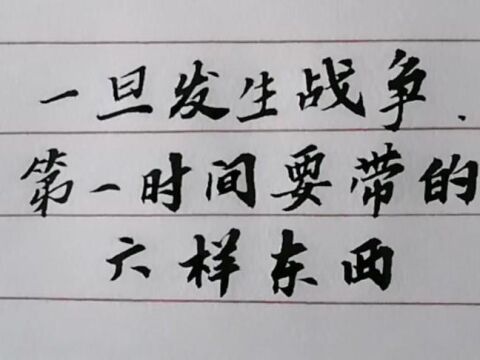 一旦发生战争.
第一时间要带的
六样东西